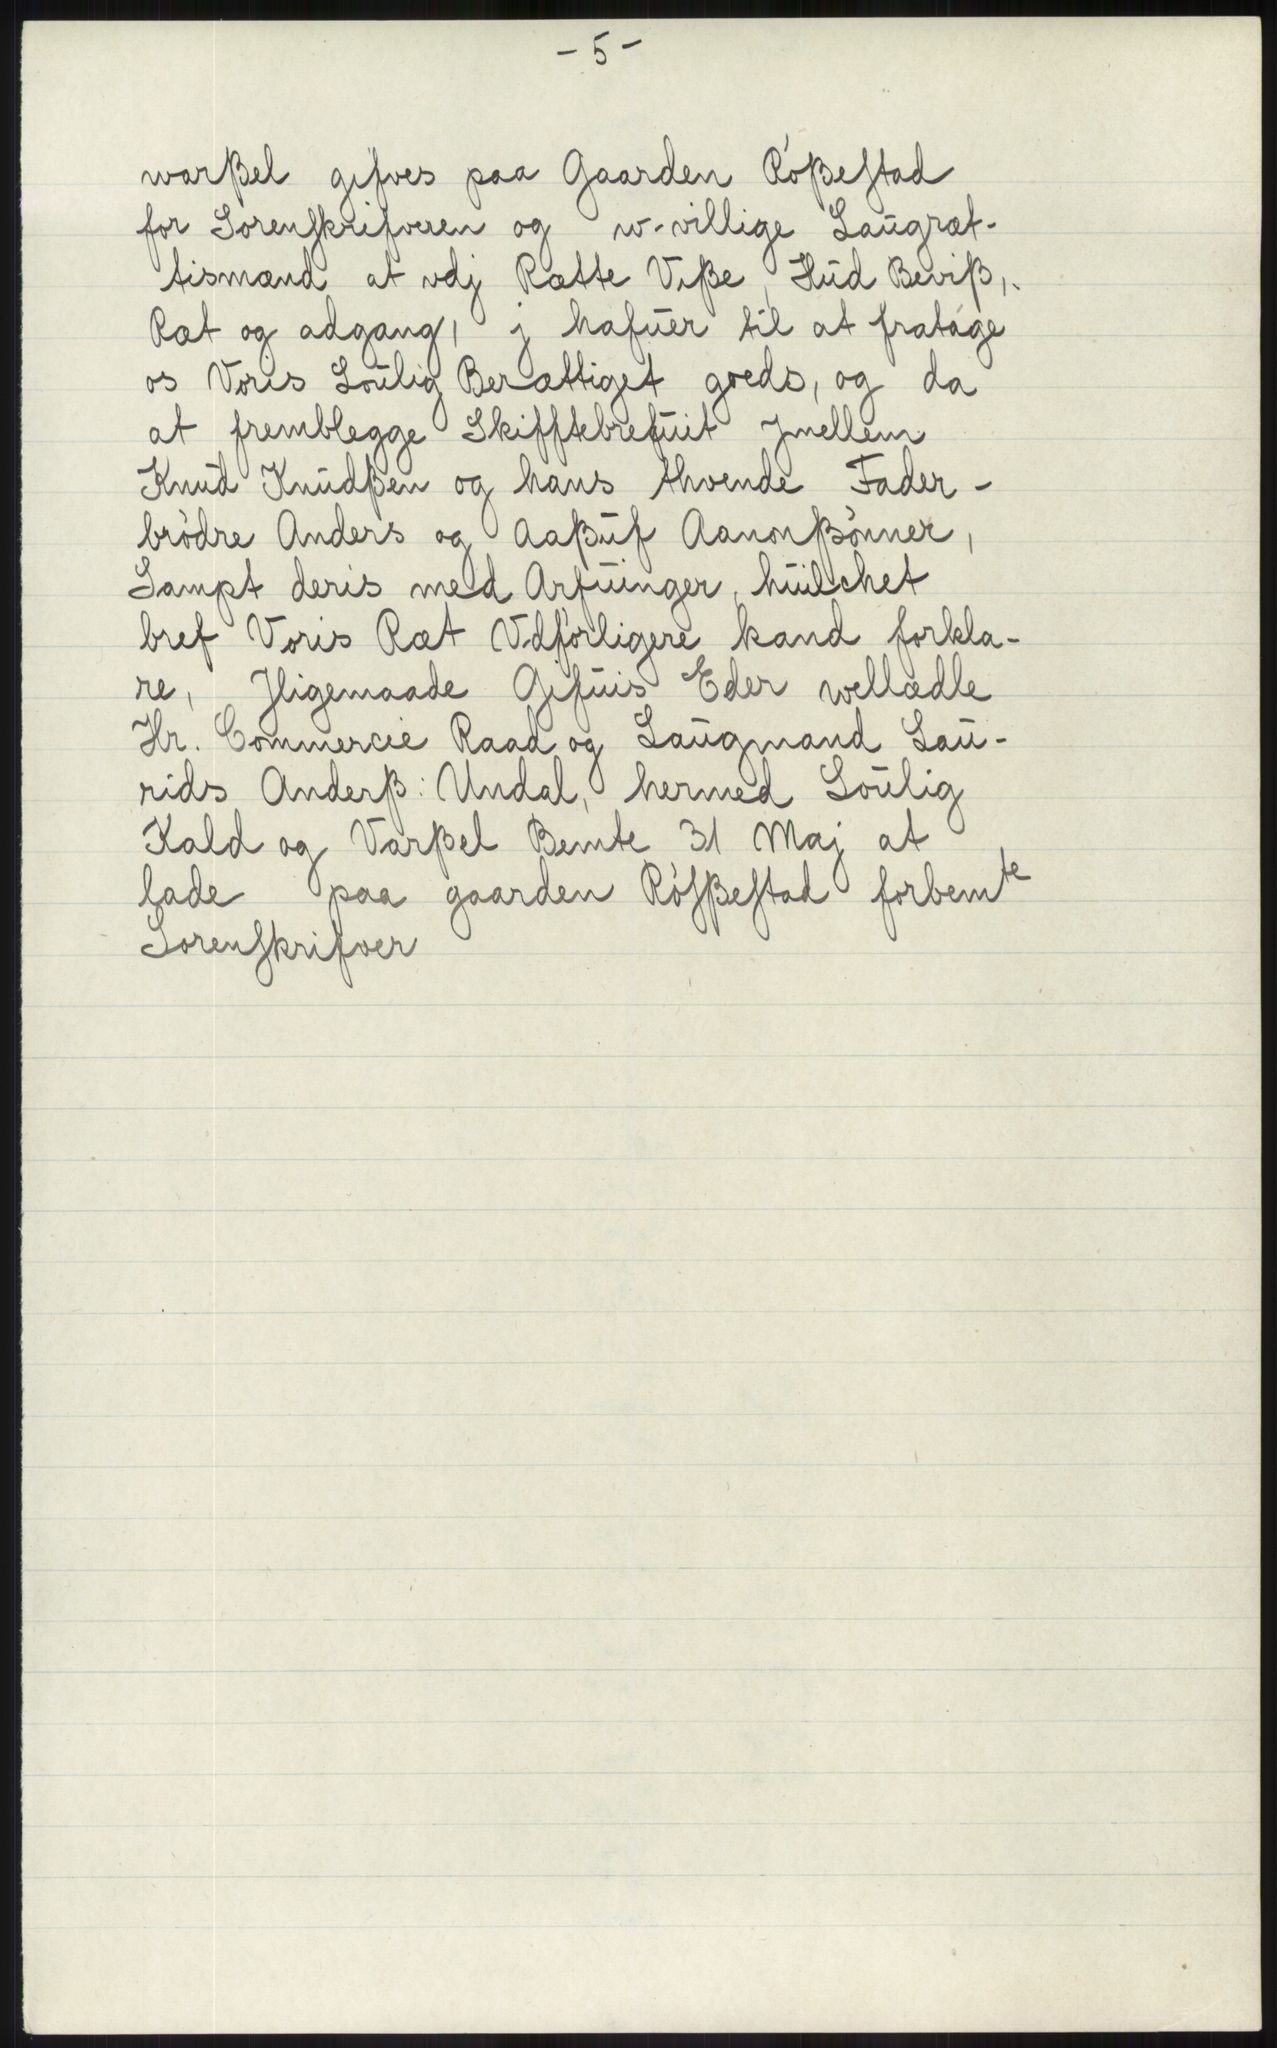 - 5 -
warßel gifves paa Gaarden Rößestad
for Sorenskrifveren og w-villige Laugræt-
tismænd at vdj Rætte Viße, Hud Beviß,
Ræt og adgang, j hafuer til at fratage
os Voris Loulig Berættiget goeds, og da
at fremblegge Skifftebrefuit Jmellem
Knud Knudßen og hans thvende Fader-
brödre Anders og Aaßuf Aanonßönner,
Sampt deris med Arfuinger, huilchet
bref Voris Ræt Vdförligere kand forkla-
re, Jligemaade Gifuis Eder wellædle
Hr. Commercie Raad og Laugmand Lau-
rids Anderß: Undal, hermed Loulig
Kald og Varßel Bemte 31 Maj at
lade paa gaarden Rösßestad forbemte
Sorenskrifver